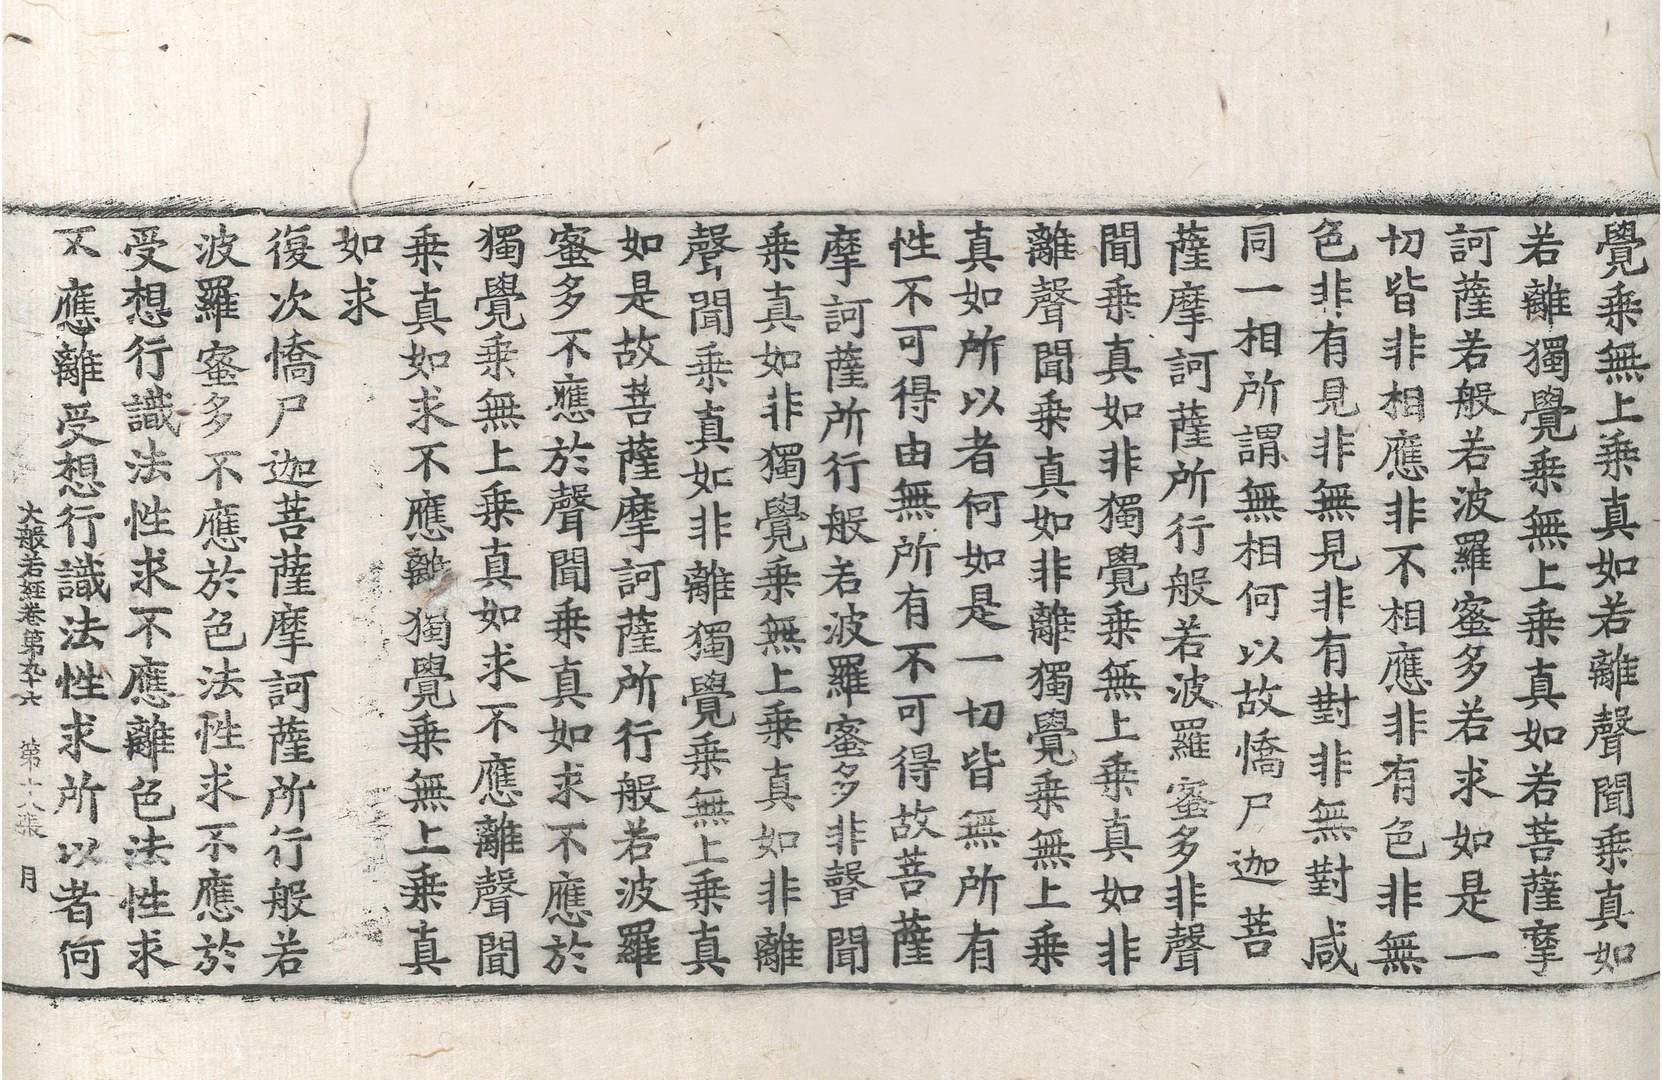 覺乘無上乘真如若離聲聞乘真如
若離獨覺乘無上乘真如若菩薩摩
訶薩若般若波羅蜜多若求如是一
切皆非相應非不相應非有色非無
色非有見非無見非有對非無對咸
同一相所謂無相何以故憍尸迦菩
薩摩訶薩所行般若波羅蜜多非聲
聞乘真如非獨覺乘無上乘真如非
離聲聞乘真如非離獨覺乘無上乘
真如所以者何如是一切皆無所有
性不可得由無所有不可得故菩薩
摩訶薩所行般若波羅蜜多非聲聞
乘真如非獨覺乘無上乘真如非離
聲聞乘真如非離獨覺乘無上乘真
如是故菩薩摩訶薩所行般若波羅
蜜多不應於聲聞乘真如求不應於
獨覺乘無上乘真如求不應離聲聞
乘真如求不應離獨覺乘無上乘真
如求
復次憍尸迦菩薩摩訶薩所行般若
波羅蜜多不應於色法性求不應於
受想行識法性求不應離色法性求
不應離受想行識法性求所以者何
大般若經卷第九十六 第十八張 月